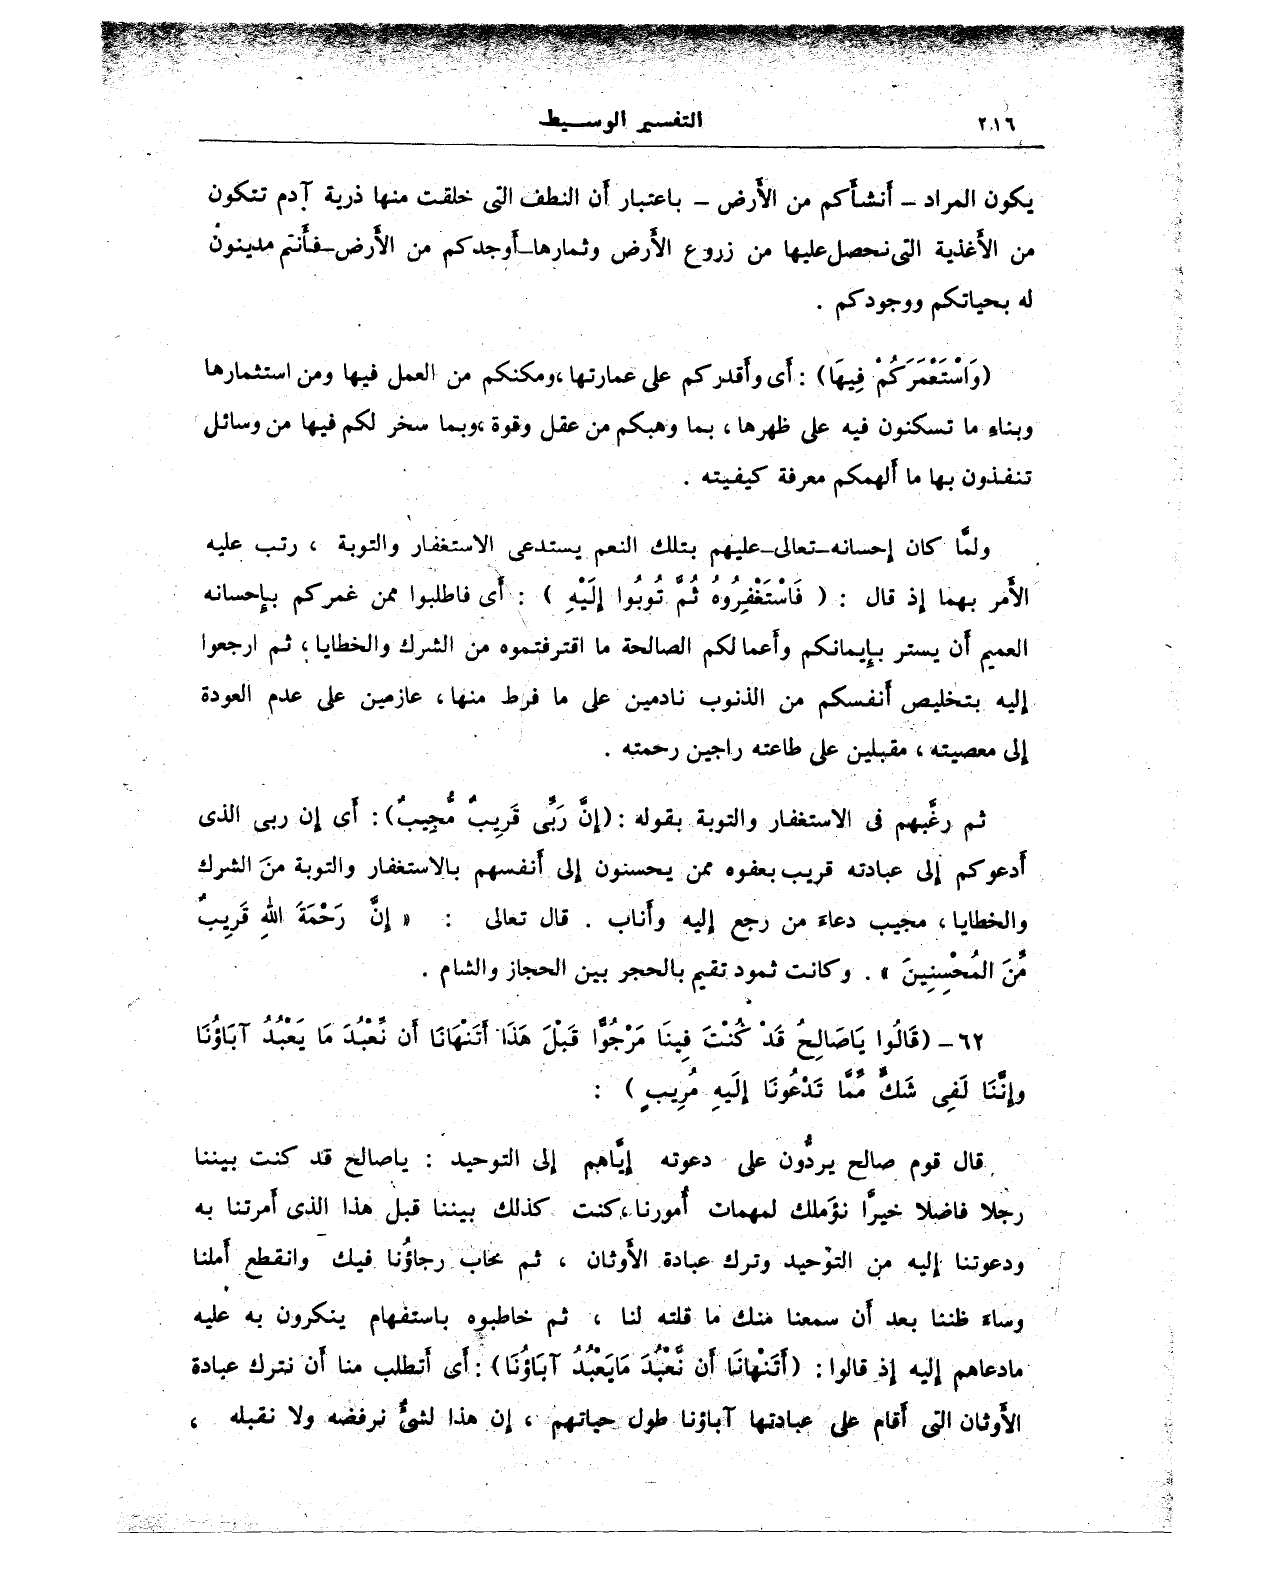 ٢٠١٦ التفسير الوسيط
يكون المراد – أنشأكم من الأرض – باعتبار أن النطف التى خلقت منها ذرية آدم تتكون
من الأغذية التى نحصل عليها من زروع الأرض وثمارها–أوجدكم من الأرض–فأنتم مدينون
له بحياتكم ووجودكم .
(وَاسْتَعْمَرَكُمْ فِيهَا) : أى وأقدركم على عمارتها ،ومكنكم من العمل فيها ومن استثمارها
وبناء ما تسكنون فيه على ظهرها ، بما وهبكم من عقل وقوة ،وبما سخر لكم فيها من وسائل
تنفذون بها ما ألهمكم معرفة كيفيته .
ولمَّا كان إحسانه–تعالى–عليهم بتلك النعم يستدعى الاستغفار والتوبة ، رتب عليه
الأمر بهما إذ قال : ( فَاسْتَغْفِرُوهُ ثُمَّ تُوبُوا إِلَيْهِ ) : أى فاطلبوا ممن غمركم بإحسانه
العميم أن يستر بإيمانكم وأعمالكم الصالحة ما اقترفتموه من الشرك والخطايا ، ثم ارجعوا
إليه بتخليص أنفسكم من الذنوب نادمين على ما فرط منها ، عازمين على عدم العودة
إلى معصيته ، مقبلين على طاعته راجين رحمته .
ثم رغَّبهم فى الاستغفار والتوبة بقوله : (إِنَّ رَبِّى قَرِيبٌ مُّجِيبٌ) : أى إن ربى الذى
أدعوكم إلى عبادته قريب بعفوه ممن يحسنون إلى أنفسهم بالاستغفار والتوبة من الشرك
والخطايا ، مجيب دعاء من رجع إليه وأناب . قال تعالى : « إِنَّ رَحْمَةَ اللهِ قَرِيبٌ
مِّنَ المُحْسِنِينَ » . وكانت ثمود تقيم بالحجر بين الحجاز والشام .
٦٢ – (قَالُوا يَاصَالِحُ قَدْ كُنْتَ فِينَا مَرْجُوًّا قَبْلَ هَذَا أَتَنْهَانَا أَن نَّعْبُدَ مَا يَعْبُدُ آبَاؤُنَا
وإِنَّنَا لَفِى شَكٍّ مِّمَّا تَدْعُونَا إِلَيهِ مُرِيبٍ ) :
قال قوم صالح يردُّون على دعوته إيَّاهم إلى التوحيد : ياصالح قد كنت بيننا
رجلا فاضلا خيرًا نؤملك لمهمات أُمورنا ،كنت كذلك بيننا قبل هذا الذى أمرتنا به
ودعوتنا إليه من التوحيد وترك عبادة الأوثان ، ثم خاب رجاؤُنا فيك وانقطع أملنا
وساء ظننا بعد أن سمعنا منك ما قلته لنا ، ثم خاطبوه باستفهام ينكرون به عليه
مادعاهم إليه إذ قالوا : (أَتَنْهانَا أَن نَّعْبُدَ مَايَعْبُدُ آبَاؤُنَا) : أى أتطلب منا أن نترك عبادة
الأوثان التى أقام على عبادتها آباؤنا طول حياتهم ، إن هذا لشىءٌ نرفضه ولا نقبله ،